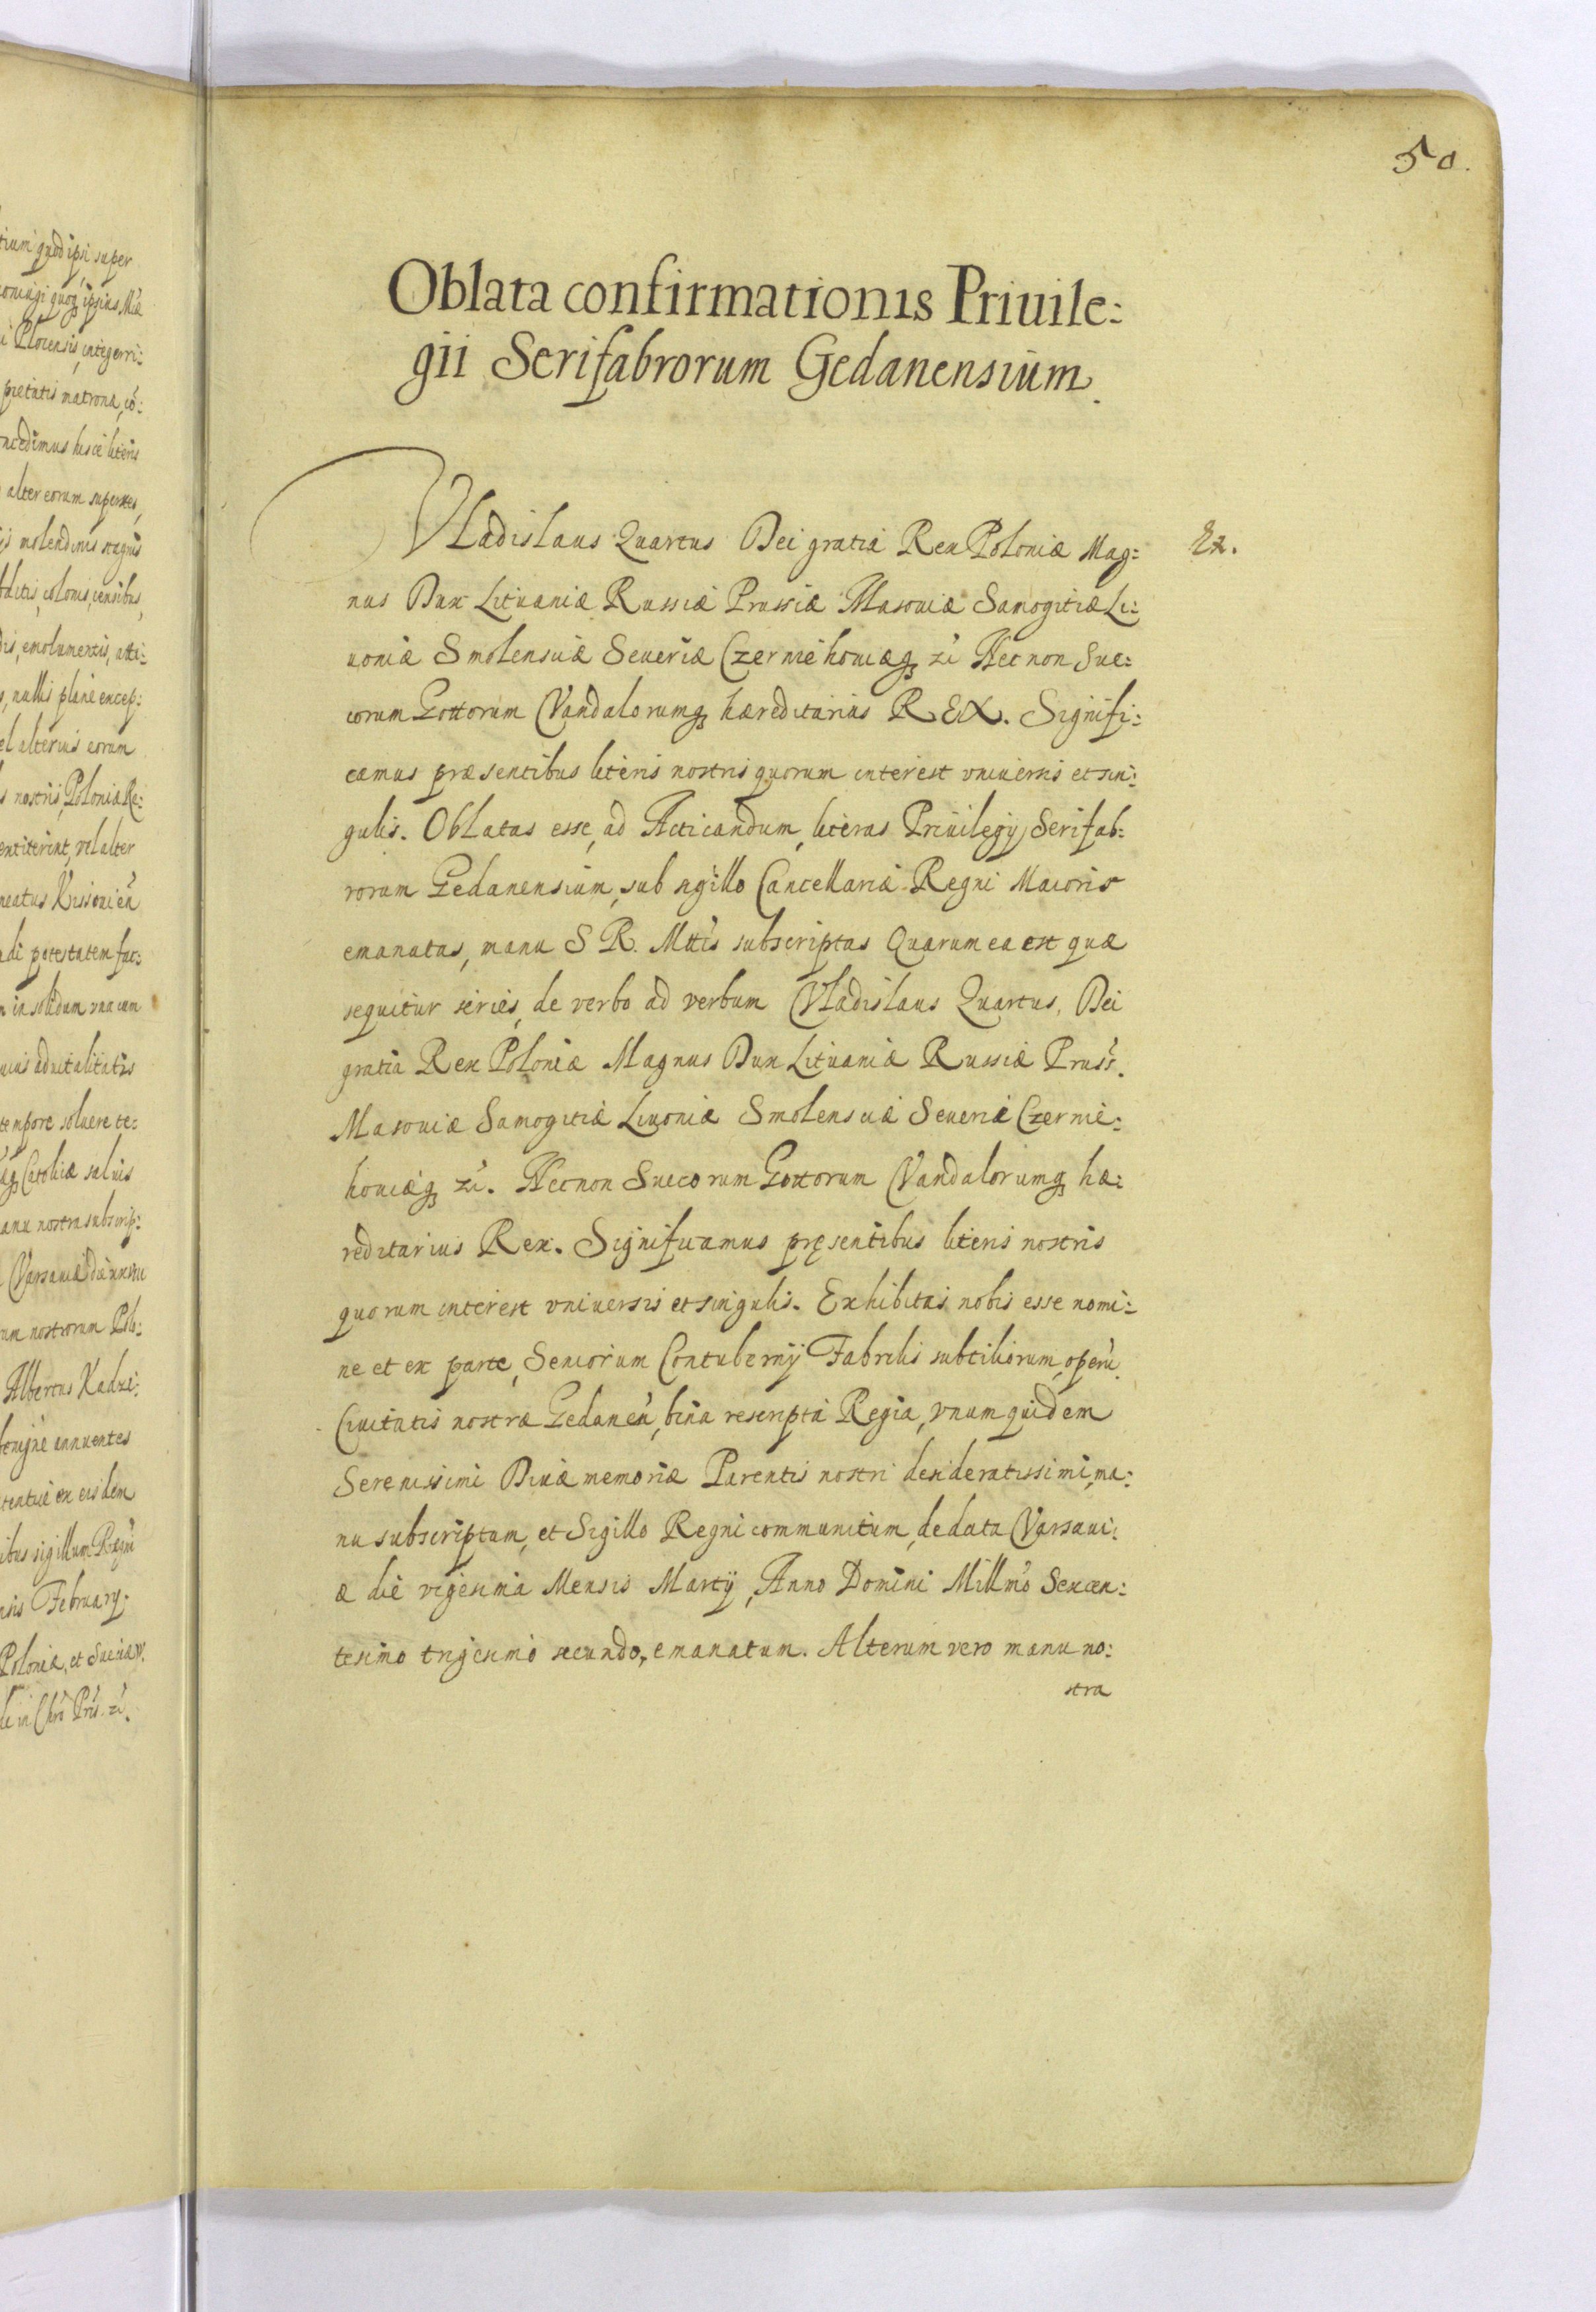 tium quod ipsi super
coniugi quoq ipsius
Plocensis, integerri:
pietatis matronæ, co:
ncedimus hisce literis
alter eorum superstes,
molendinis stagnis
colonis, censibus,
emolumentis, atti:
nullis plane excep:
el alterius eorum
nostris Poloniæ Re:
extiterint, vel alter
di potestatem fac:
in solidum vna cum
aduitalitatis
tempore soluere te:
Catolicæ saluis
anu nostra subscrip:
Varsauiæ die
um nostrorum
Albertus Kadzi:
benigne annuentes
ex eisdem
ibus sigillum Regni
nsis February.
Poloniæ, et Sueciæ
50.
Oblata confirmationis Priuile:
gii Serifabrorum Gedanensium.
Vladislaus Quartus Dei gratia Rex Poloniæ Mag:
Ex.
nus Dux Lituaniæ Russiæ Prussiæ Masouiæ Samogitiæ Li:
uoniæ Smolensciæ Seueriæ Czerniehouiæq zc Necnon Sue:
corum Gottorum Vandalorumq hæreditarius REX. Signifi:
camus præsentibus literis nostris quorum interest vniuersis et sin:
gulis. Oblatas esse, ad Acticandum, literas Priuilegij Serifab:
rorum Gedanensium, sub sigillo Cancellariæ Regni Maioris
emanatas, manu S R. Mttis subscriptas Quarum ea est quæ
sequitur series, de verbo ad verbum Vladislaus Quartus, Dei
gratia Rex Poloniæ Magnus Dux Lituaniæ Russiæ Pruss.
Masouiæ Samogitiæ Liuoniæ Smolensciæ Seueriæ Czernie:
houiæq zc. Necnon Suecorum Gottorum Vandalorumq hæ:
reditarius Rex. Significamus pręsentibus literis nostris
quorum interest vniuersis et singulis. Exhibitas nobis esse nomi:
ne et ex parte, Seniorum Contubernij Fabrilis subtiliorum, operū
Ciuitatis nostræ Gedanen, bina rescripta Regia, vnum quidem
Serenissimi Diuæ memoriæ Parentis nostri desideratissimi, ma:
nu subscriptum, et Sigillo Regni communitum, de data Varsaui:
æ die vigesima Mensis Martij, Anno Domini Millmo Sexcen:
tesimo trigesimo secundo, emanatum. Alterum vero manu no:
stra